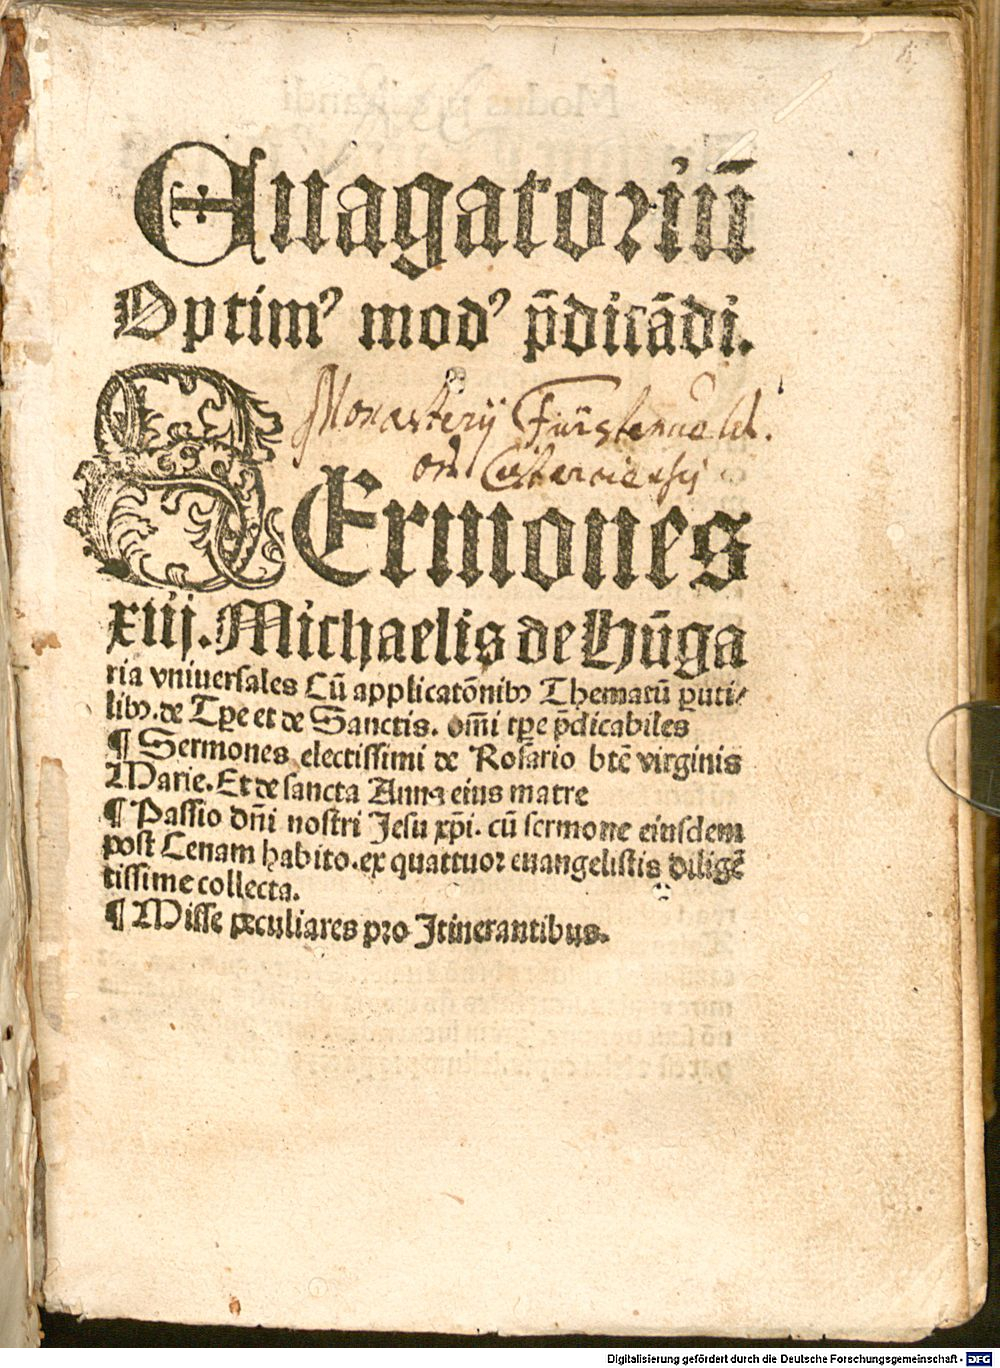 Euagatoriū
Optimꝰ modꝰ p̄dicādi.
Monasterij Fürstenueld.
ord. Cisterciensis
SErmones
xiij. Michaelis de Hūga
ria vniuersales Cū applicatōnibꝫ Thematū ꝑuti⸗
libꝫ. de Tꝑe et de Sanctis. om̄i tꝑe p̄dicabiles
¶ Sermones electissimi de Rosario btē virginis
Marie. Et de sancta Anna eius matre
¶ Passio dn̄i nostri Jesu xp̄i. cū sermone eiusdem
post Cenam habito. ex quattuor euangelistis diligē
tissime collecta.
¶ Misse peculiares pro Itinerantibus.
Digitalisierung gefördert durch die Deutsche Forschungsgemeinschaft - DFG